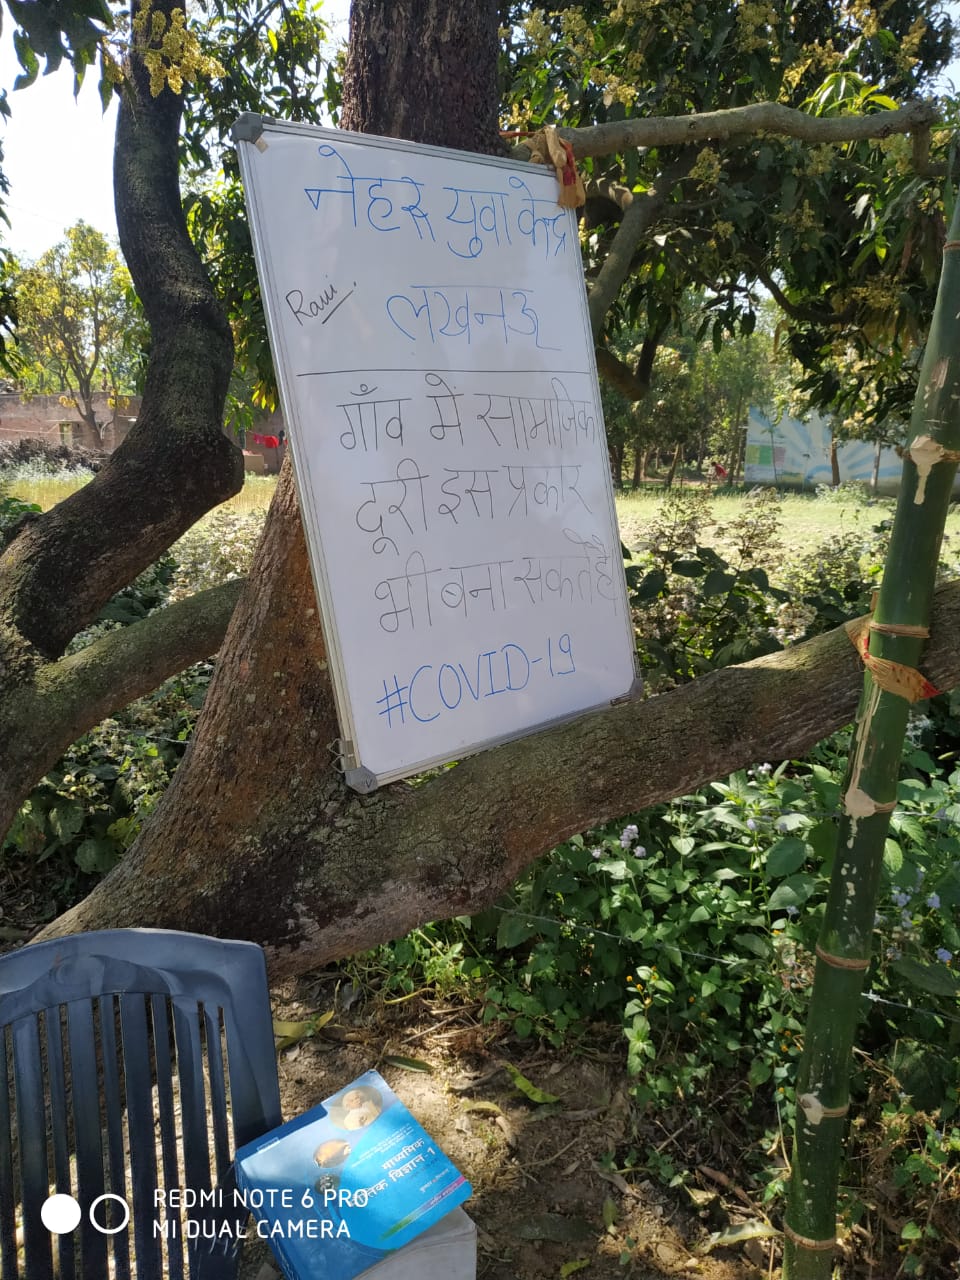 नेहरू युवा केन्द्र
Ravi
लखनऊ
गाँव में सामाजिक
दूरी इस प्रकार
भी बना सकते है
#COVID-19
माध्यमिक
विज्ञान-1
REDMI NOTE 6 PRO
MI DUAL CAMERA